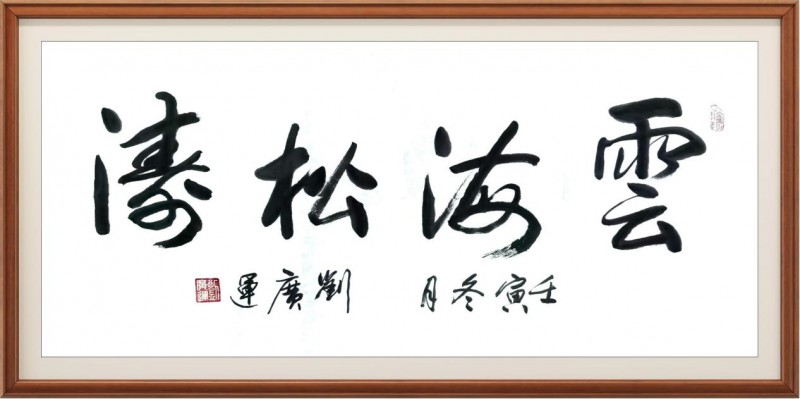 雲海松濤
壬寅冬月 劉廣運